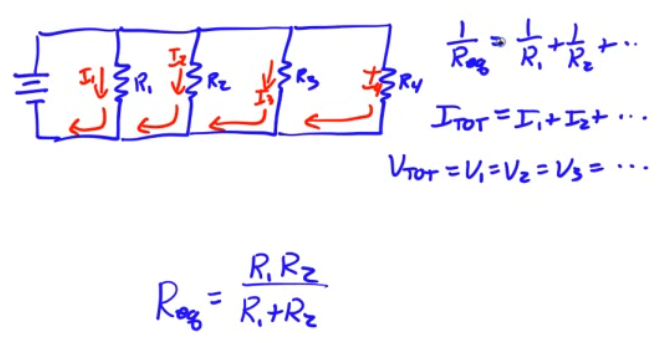 I₁ R₁ I₂ R₂ I₃ R₃ I₄ R₄
1/R_eq = 1/R₁ + 1/R₂ + ··
I_TOT = I₁ + I₂ + ···
V_TOT = V₁ = V₂ = V₃ = ···
R_eq = R₁R₂/(R₁+R₂)